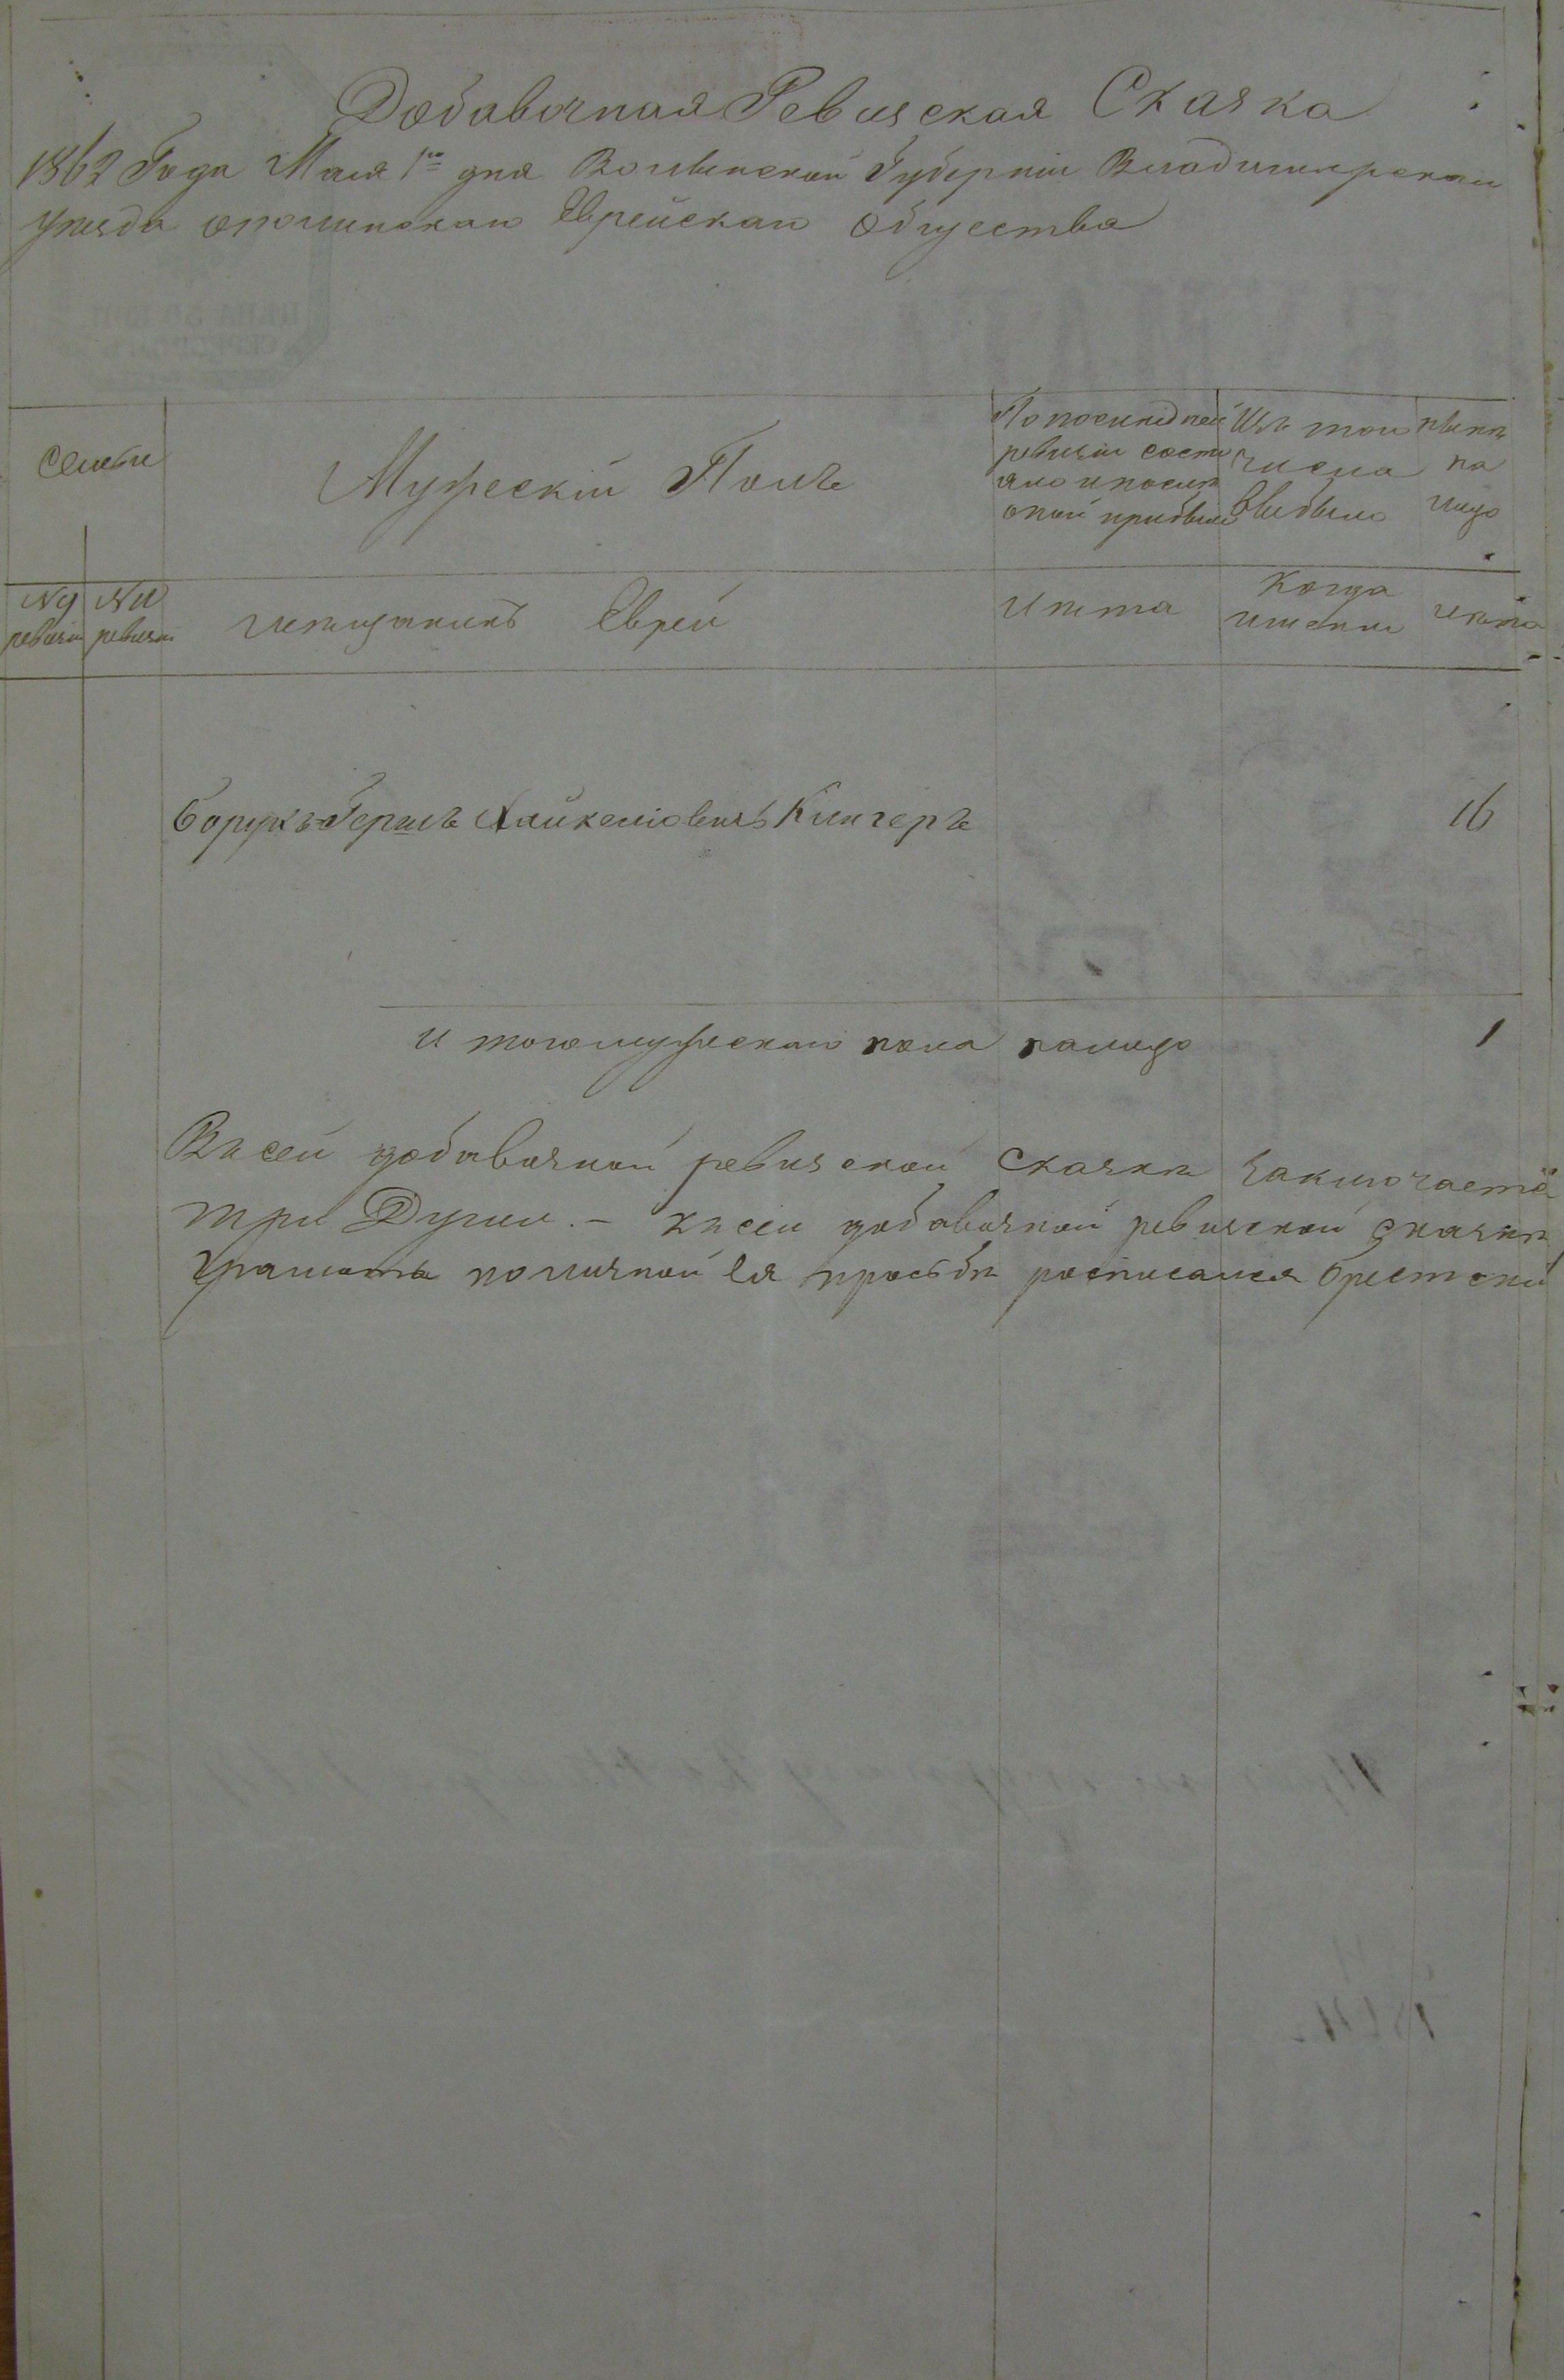 Добавочная Ревизская Сказка
1862 Года Мая 1го дня Волынской Губерніи Владимирскаго
уѣзда опалинскаго Еврейскаго Общества
Семьи
Мужескій Полъ
По послѣдней
ревизіи состо
яло и послѣ
оной прибыло
Изъ того
числа
выбыло
нынѣ
на
лицо
№ 9
ревизіи
№ 10
ревизіи
мѣщанинъ Еврей
лѣта
Когда
именно
лѣта
Борухъ-Гершъ Хайкеліовичъ Клигеръ
16
Итого мужескаго пола налицо
1
Въ сей добавочной ревизской сказкѣ заключается
три Души. — къ сей добавочной ревизской сказкѣ
по личной Ея прозьбѣ росписался Брестскій